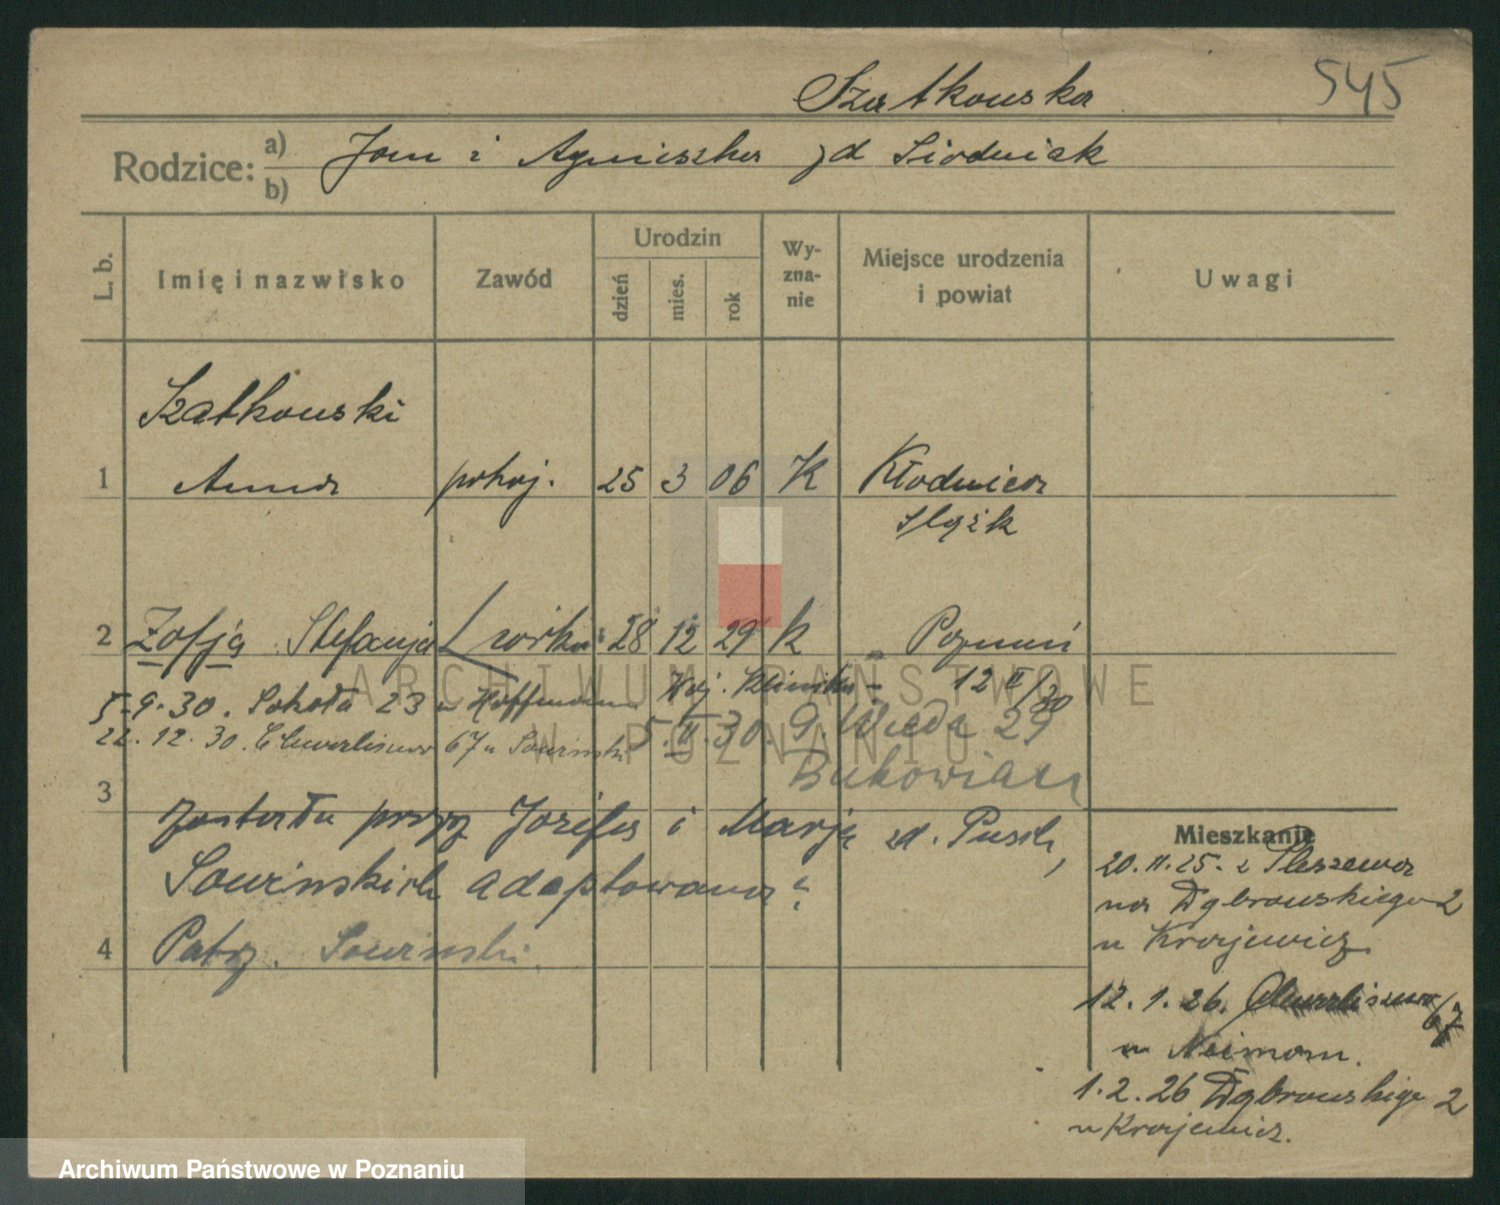 Szatkowska
545
Rodzice: a) Jan i Agnieszka zd Siodmiak
b)
L. b.
Imię i nazwisko
Zawód
Urodzin
dzień
mies.
rok
Wy-
zna-
nie
Miejsce urodzenia
i powiat
Uwagi
Szatkowski
1 Anna pokoj. 25 3 06 K Kłodnica
Sląsk
2 Zofja Stefanja córka 28 12 29 K Poznań
5.9.30. Sokoła 23 u Hoffmanna Woj. Klinika - 12 II/30
22.12.30. Chwaliszewo 67 u Sowinski 5.II.30. G. Wieda 29
Bukowiacz
3
została przez Józefa i Marję zd. Pusch,
Sowińskich adoptowana
4 Patrz. Sowinski.
Mieszkanie
20.11.25. z Pleszewa
na Dąbrowskiego 2
u Krajewicz
12.1.26. Chwaliszewo 67
u Neiman.
1.2.26 Dąbrowskiego 2
u Krajewicz.
ARCHIWUM PAŃSTWOWE
W POZNANIU
Archiwum Państwowe w Poznaniu